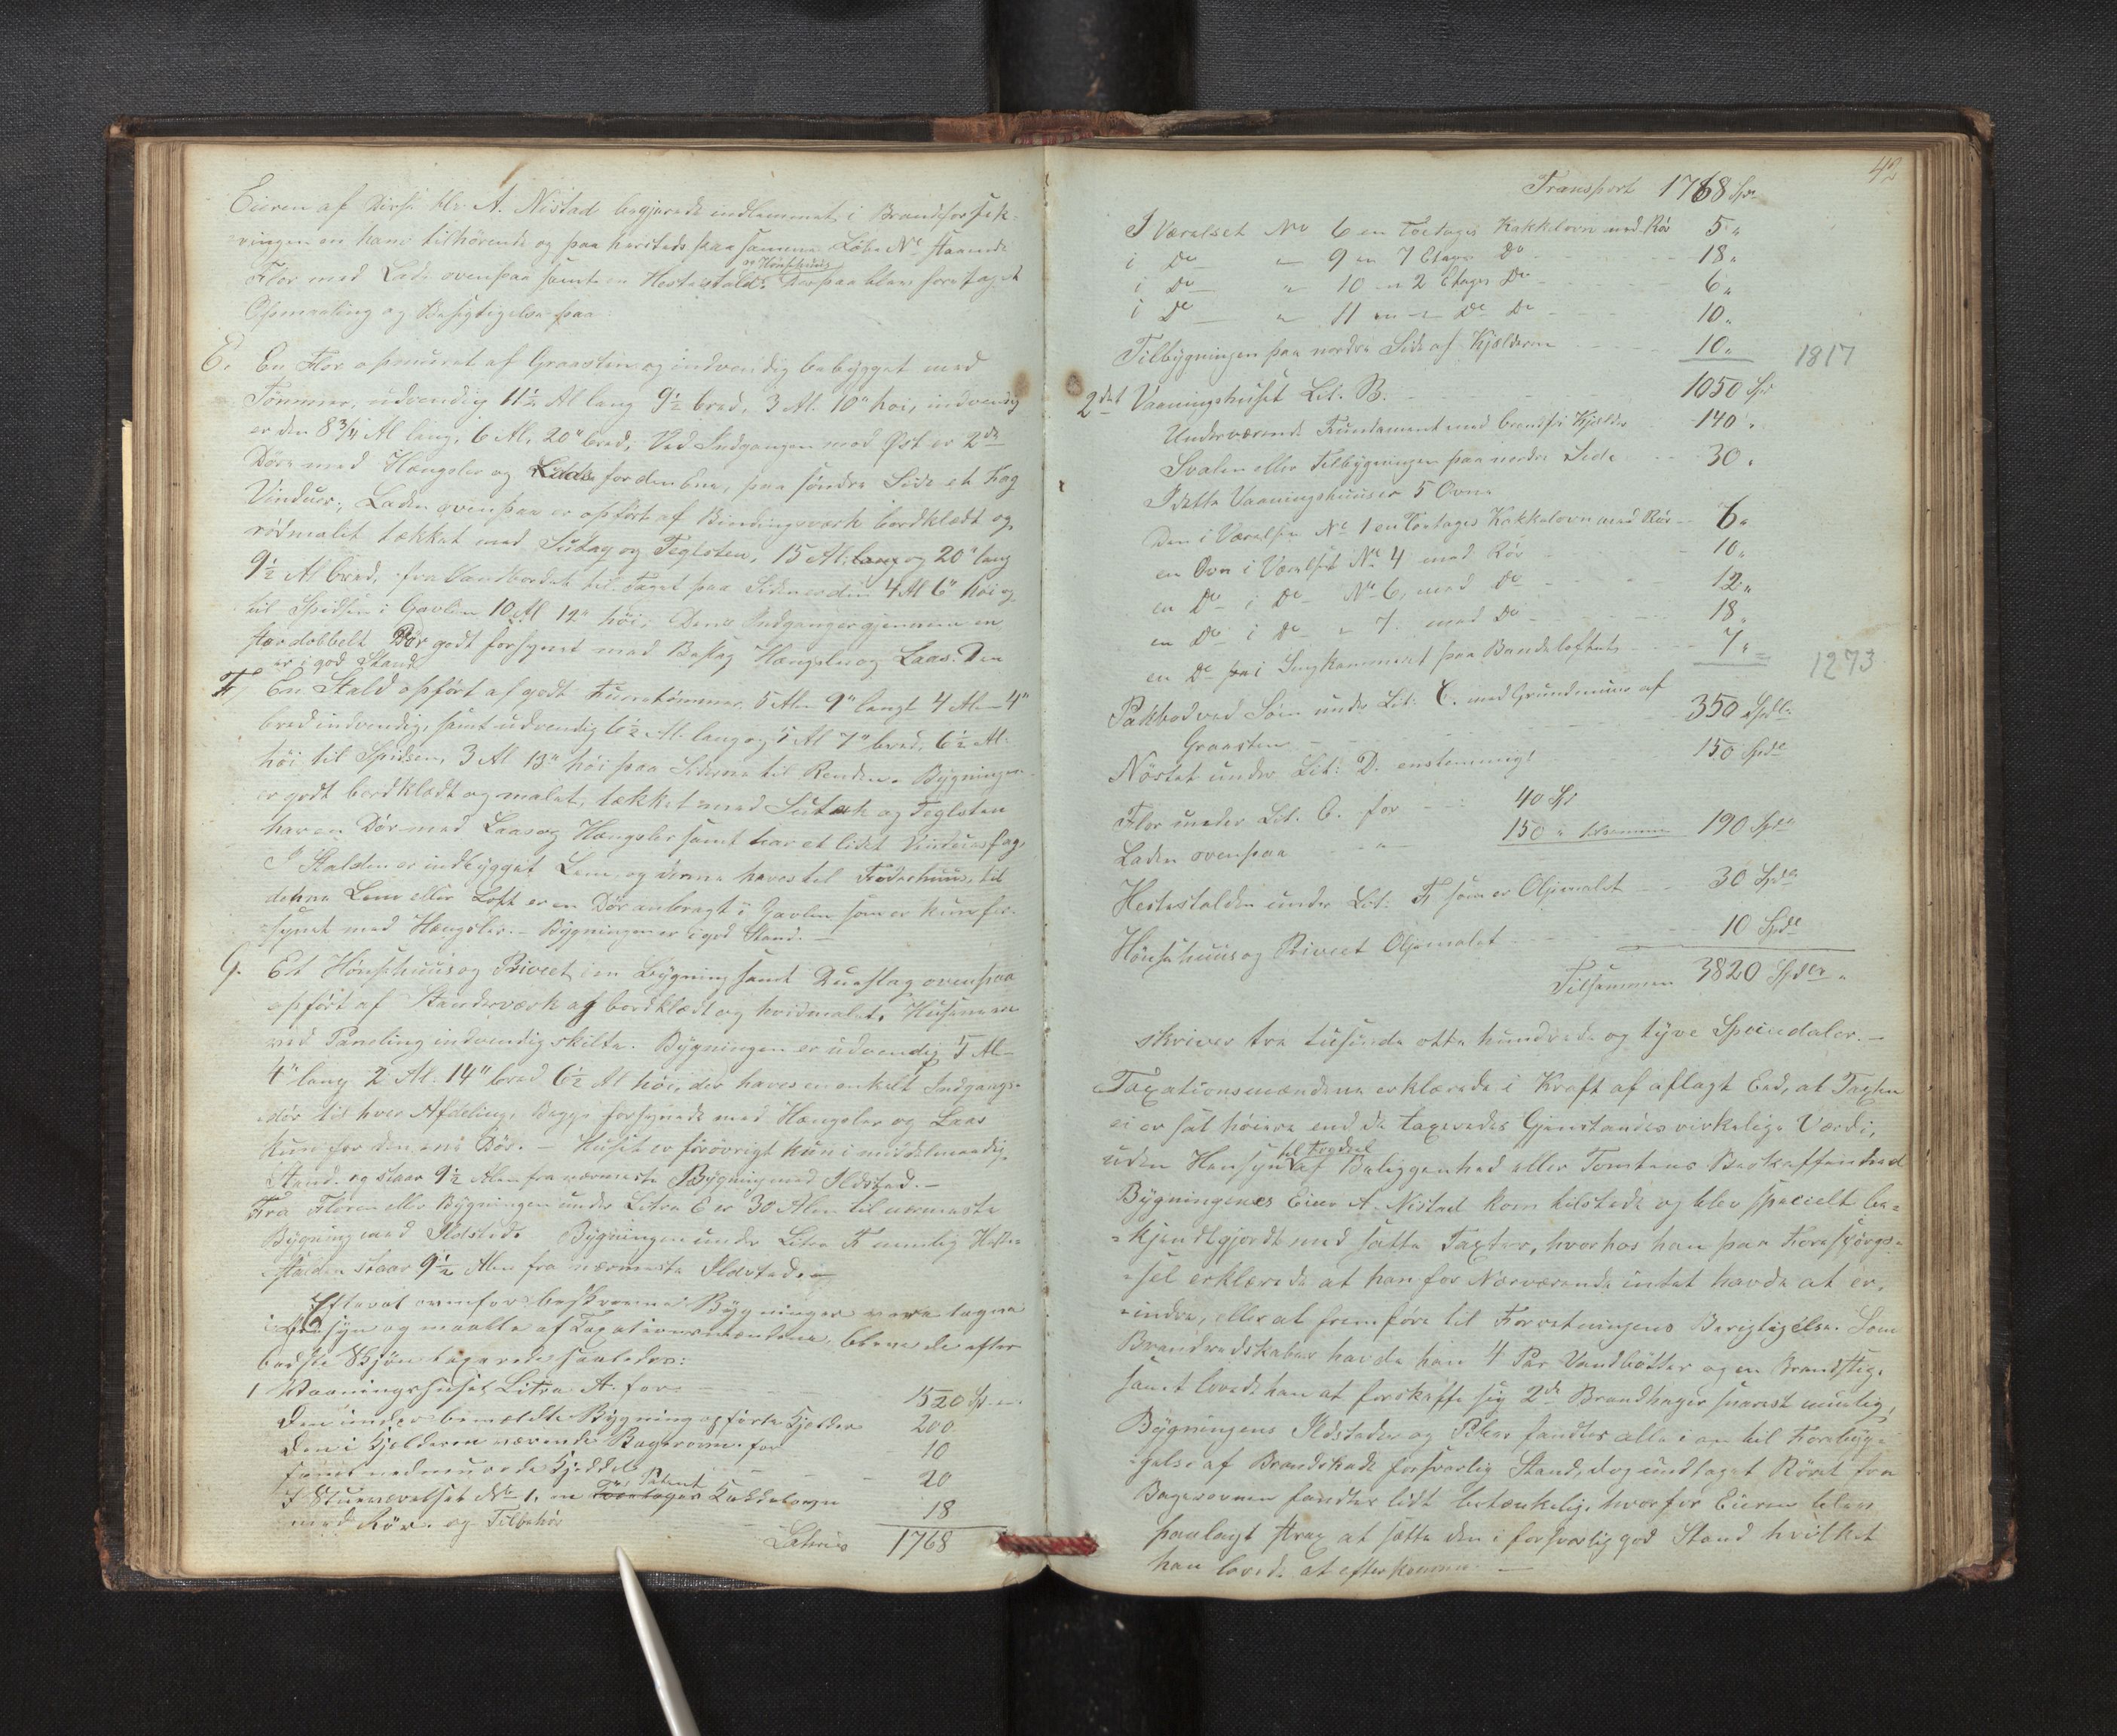 Eieren af disse Hr. A. Nistad begjærede indlemmet i Brandforsik-
ringen en ham tilhørende og paa hersteds paa samme Løbe No staaende
og Hönsehuus
Flor med Lade ovenpaa samt en Hestestald. Herpaa blev foretaget
Opmaaling og Besigtigelse paa:
E. En Flor opmuret af Graasten og indvendig bebygget med
Tømmer, udvendig 11½ Al lang 9½ bred, 3 Al. 10" høi, indvendig
er den 8¾ Al lang, 6 Al. 20" bred, Ved Indgangen mod Øst er 2de
Döre med Hængsler og for den ene, paa söndre Side et Fag
Vinduer, Laden ovenpaa er opfört af Bindingsværk bordklædt og
rödmalet tækket med Sutag og Teglsten, 15 Al. lang og 20" lang
9½ Al bred, fra Vandbordet til Taget paa Siden er den 4 Al 6" høi og
til Spidsen i Gavlen 10 Al 12" höi, Dens Indgang er gjennem en
stor dobbelt Dör godt forsynet med Beslag Hængsler og Laas. Den
er i god Stand
F, En Stald opfört af godt Furretömmer 5 Alen 9" langt 4 Alen 4"
bred indvendig, samt udvendig 6½ Al. lang og 5 Al 7" bred, 6½ Al.
høi til Spidsen, 3 Al 13" høi paa Siderne til Renden. Bygningen
er godt bordklædt og malet, tækket med Sutak og Teglsten
har en Dör med Laas og Hængsler samt har et lidet Vinduesfag.
I Stalden er indbygget Lem og denne haves til Foderhuus, til
denne Lem eller Loft er en Dör anbragt i Gavlen som er kun for-
synet med Hængsler. - Bygningen er i god Stand. -
G. Et Hönsehuus og Privet i en Bygning samt Dueslag ovenpaa
opfört af Standerværk af bordklædt og hvidmalet. Husene ere
ved Paneling indvendig skilte. Bygningen er udvendig 5 Al-
4" lang 2 Al. 14" bred 6½ Al høi, der haves en enkelt Indgangs-
dör til hver Afdeling, Begge forsynede med Hængsler og Laas
kun for den ene Dör. - Huset er forövrigt kun i middelmaadig
Stand og staar 9½ Alen fra nærmeste Bygning med Ildsted. -
Fra Floren eller Bygningen under Litra E er 30 Alen til nærmeste
Bygning med Ildsted. Bygningen under Litra F nemlig Heste-
stalden staar 9½ Alen fra nærmeste Ildsted. -
Efterat ovenfor beskrevne Bygninger vare tagne
i Øiesyn og maalte af Taxationsmændene, bleve de efter
bedste Skjön taxerede saaledes:
1 Vaaningshuset Litra A. for - 1520 Sp
Den under bemeldte Bygning opførte Kjelder 200
Den i Kjelderen værende Bagerovn for 10
samt nedmurede Kjeddel 20
Patent
I Stueværelset No 1, en Toeetages Kakkelovn
med Rör og Tilbehör 18
Latus 1768
42
Transport 1768 Spd
I Værelset No 6 en toetages Kakkelovn med Rör 5 "
i Do " 9 en 7 Etages Do 18 "
i Do " 10 en 2 Etages Do 6 "
i Do " 11 en " Do Do 10 "
Tilbygningen paa nordre Side af Kjelderen 10 " 1817
2det Vaaningshuset Lit. B. 1050 Spd
Underværende Fundament med brandfri Kjelder 140 "
Svalen eller Tilbygningen paa nordre Side 30 "
I dette Vaaningshuus er 5 Ovne
Den i Værelse No 1 en Toetages Kakkelovn med Rör 6 "
en Ovn i Værelset No 4 med Rör 10 "
en Do i Do No 6, med Do 12 "
en Do i Do " 7. med Do 18 "
en Do paa i Pigekammeret paa Bandeloftet 7 " 1273
Pakbod ved Söen under Lit: C. med Grundmuur af
Graasten 350 Spdlr
Nöstet under Lit: D. enstemmigt 150 Spd
Flor under Lit. E. for 40 Sp
Laden ovenpaa " 150 " tilsammen 190 Spd
Hestestalden under Lit: F som er Oljemalet 30 Spd
Hönsehuus og Priveet Oljemalet 10 Spd
Tilsammen 3820 Spdlr "
skriver tre tusinde otte hundrede og tyve Speciedaler. -
Taxationsmændene erklærede i Kraft af aflagt Eed, at Taxten
ei er sat höiere end de taxeredes Gjenstandes virkelige Værdi,
til Fordeel
uden Hensyn af Beliggenhed eller Tomtens Beskaffenhed
Bygningenes Eier A. Nistad kom tilstede og blev specielt be-
-kjendtgjordt med satte Taxter, hvorhos han paa Forespörgs-
-sel erklærede at han for Nærværende intet havde at er-
-indre, eller at fremföre til Forretningens Berigtigelse. Som
Brandredskaber havde han 4 Par Vandbötter og en Brandstige
samt lovede han at forskaffe sig 2de Brandhager snarest muelig,
Bygningens Ildsteder og Piber fandtes alle i en til Forebyg-
-gelse af Brandskade forsvarlig Stand, dog undtaget Röret fra
Bagerovnen fandtes lidt betænkelig, hvorfor Eieren blev
paalagt strax at sætte den i forsvarlig god Stand hvilket
han lovede at efterkomme. -